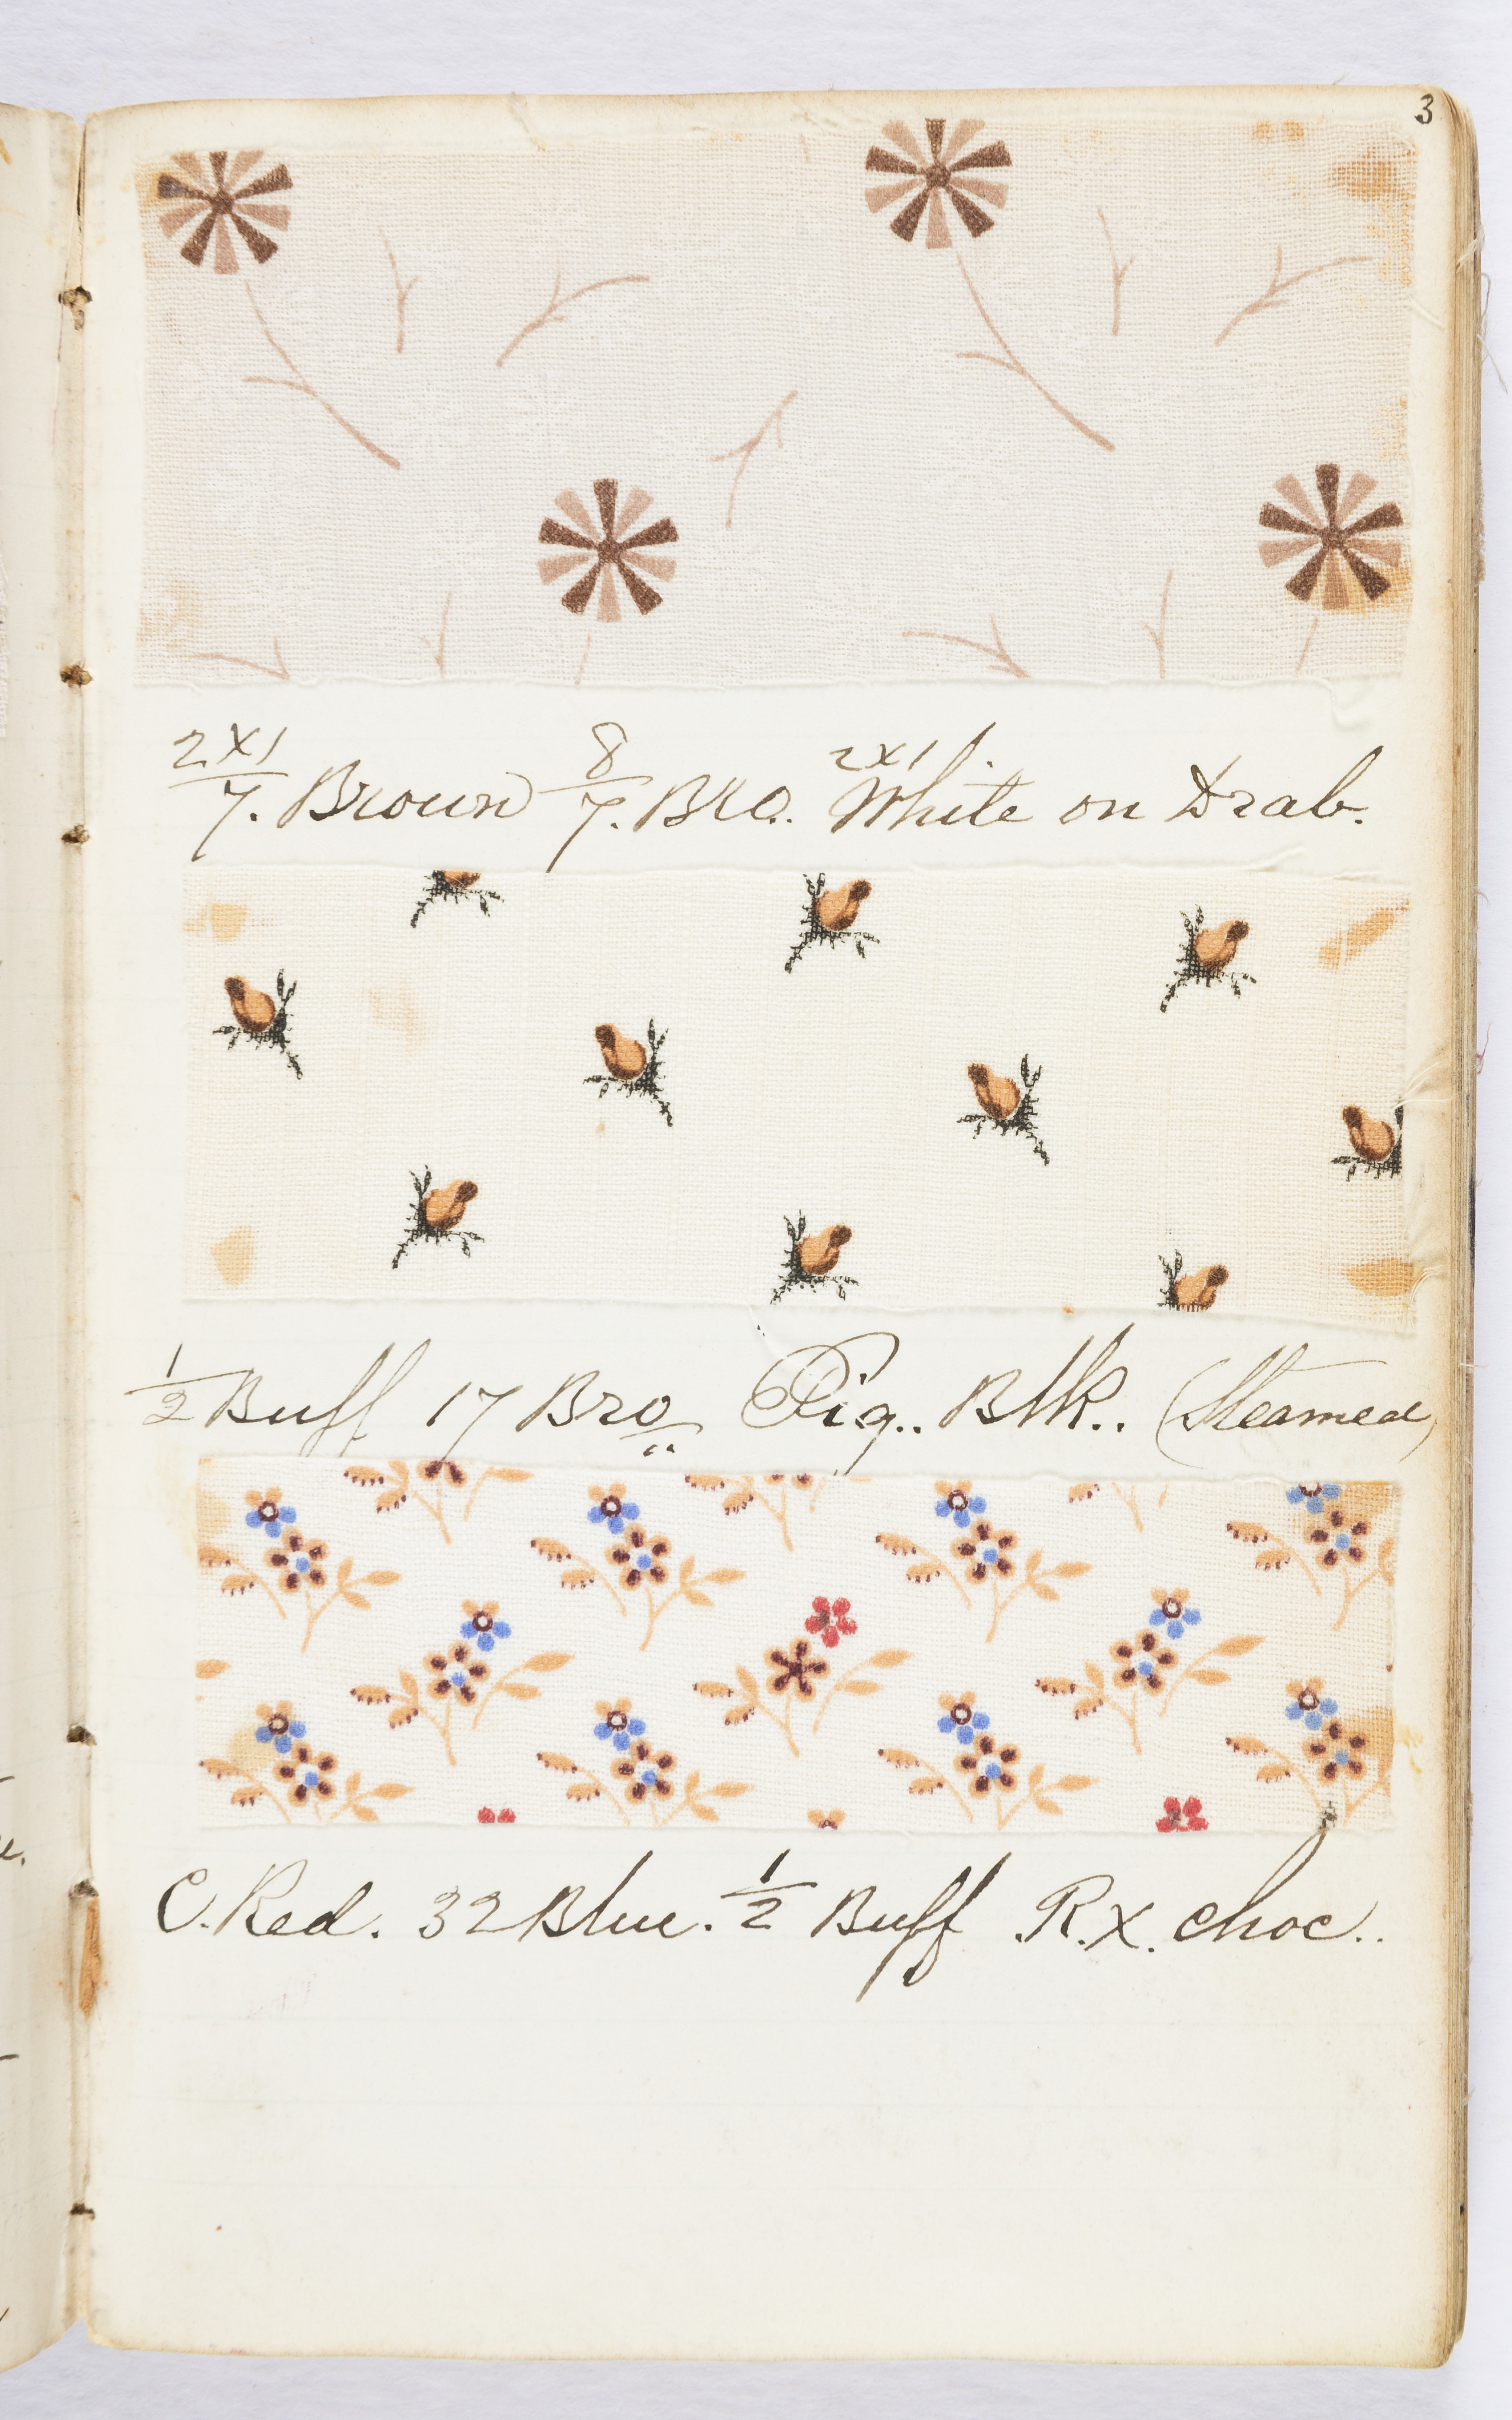 3
2x1/7. Brown 8/7. Bro. 2x1 White on Drab.
1/2 Buff 17 Bro Pig.. Blk.. (Steamed)
C. Red. 32 Blue. 1/2 Buff .R.X. choc..